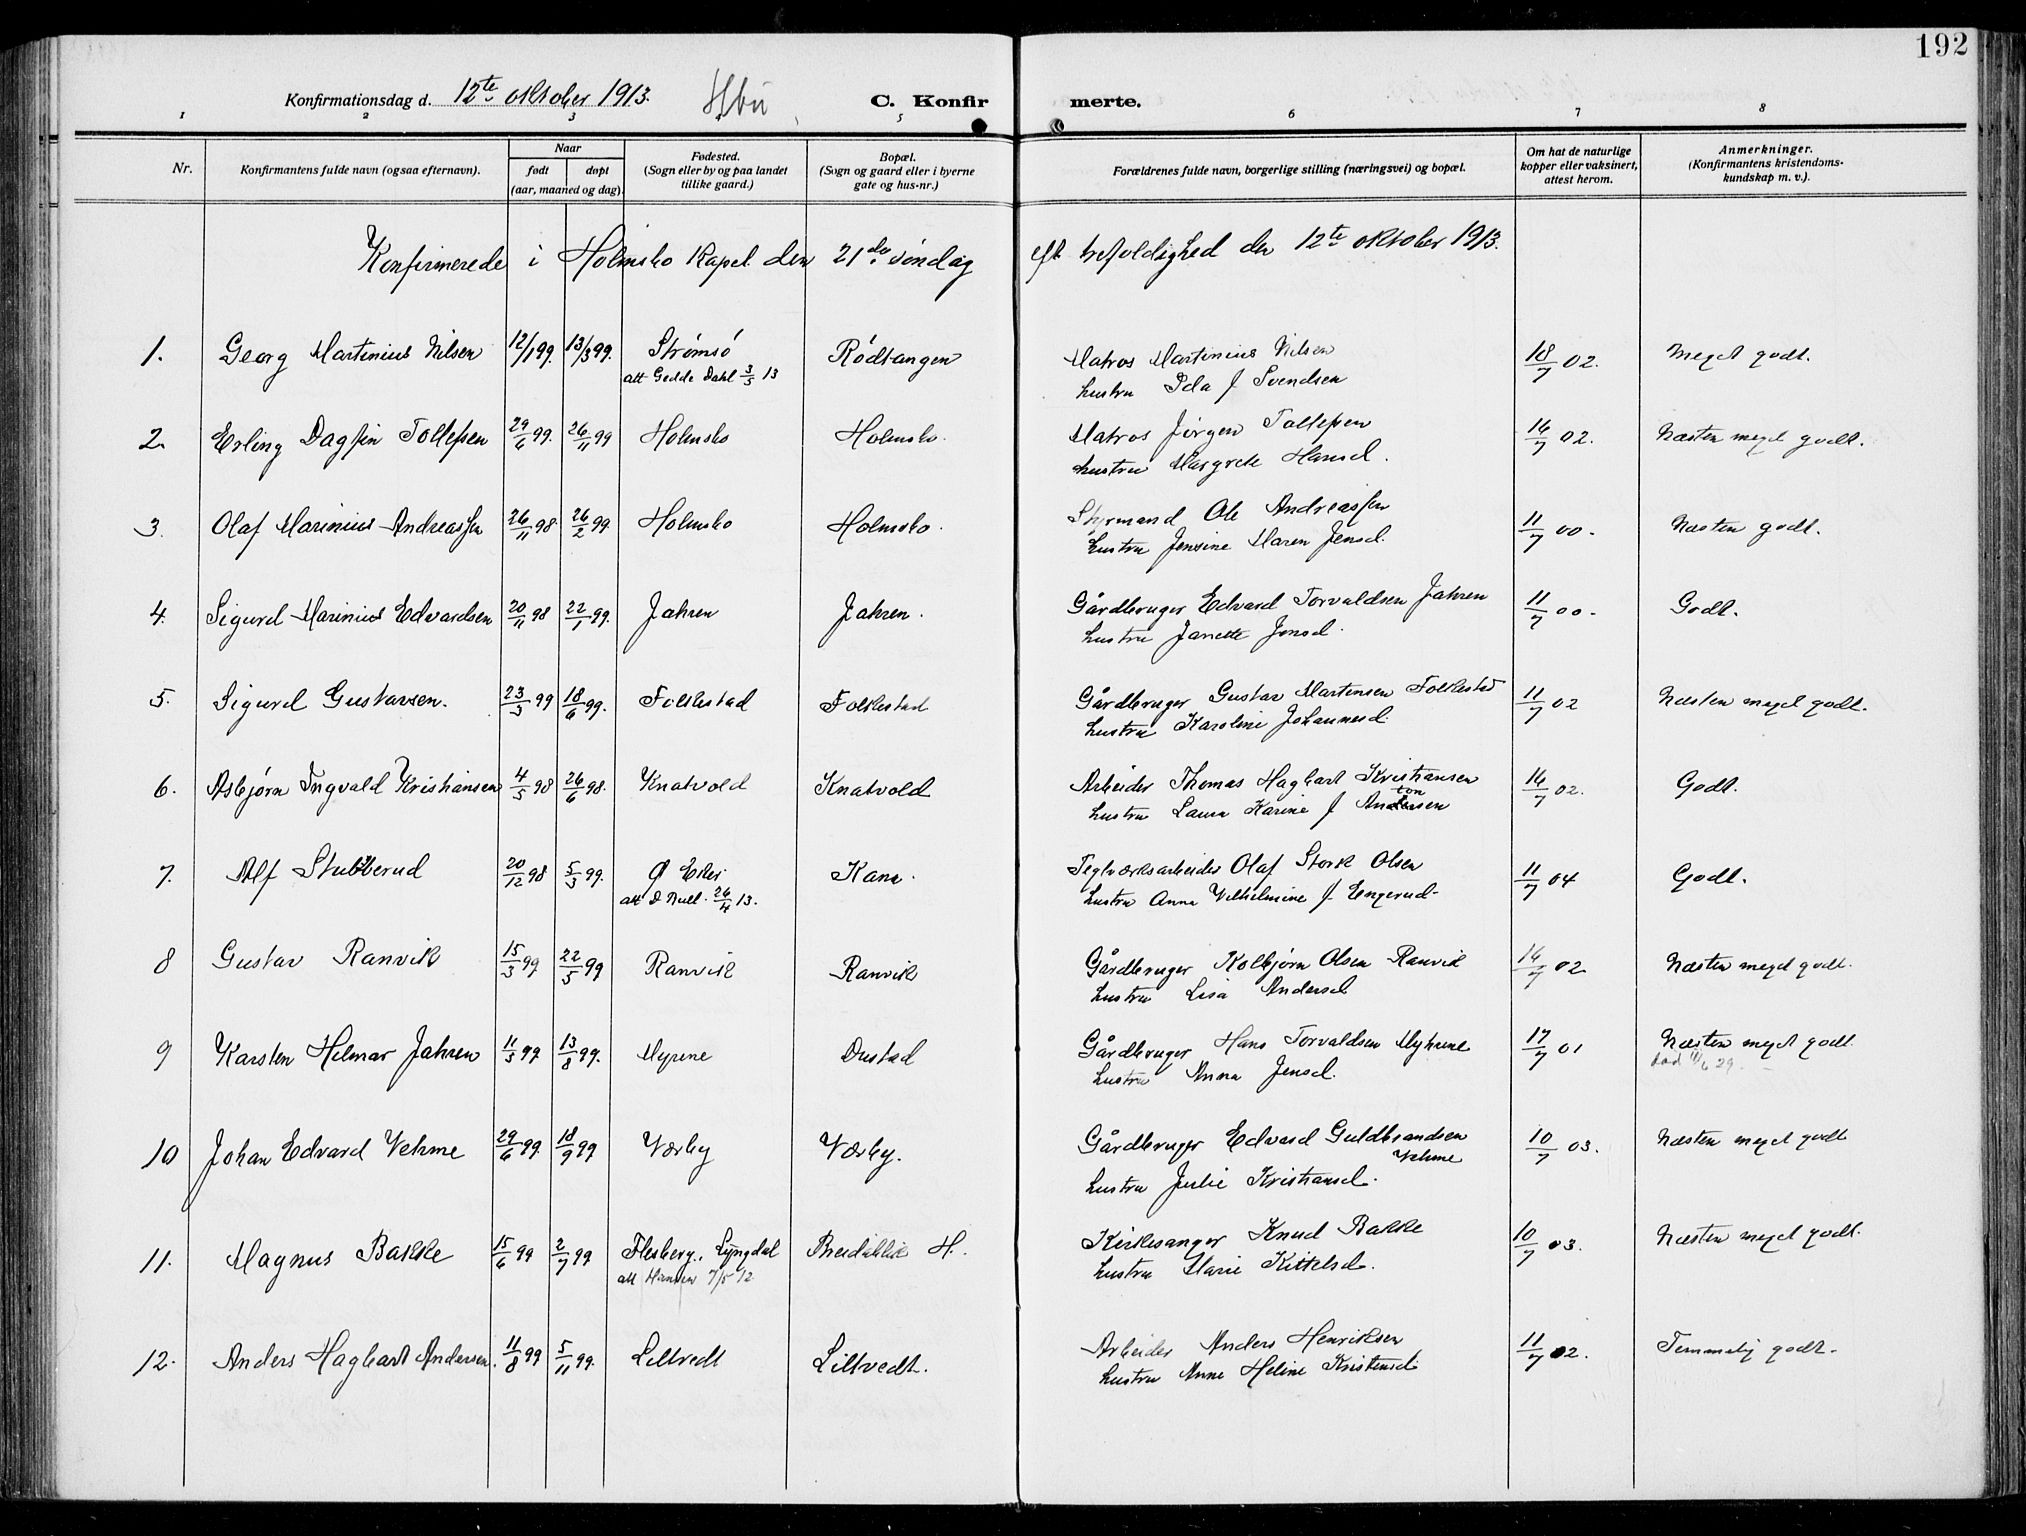 192
Konfirmationsdag d. 12te oktober 1913. C. Konfirmerte.
1 2 3 5 6 7 8
Nr. Konfirmantens fulde navn (ogsaa efternavn). Naar født døpt (aar, maaned og dag). Fødested. (Sogn eller by og paa landet tillike gaard.) Bopæl. (Sogn og gaard eller i byerne gate og hus-nr.) Forældrenes fulde navn, borgerlige stilling (næringsvei) og bopæl. Om hat de naturlige kopper eller vaksinert, attest herom. Anmerkninger. (Konfirmantens kristendomskundskap m. v.).
Konfirmerede i Holmsbo Kapel den 21de søndag eft. trefoldighed den 12te oktober 1913.
1. Georg Martinius Nilsen 12/1 99. 13/3 99. Strømsø Rødtangen Matros Martinius Nilsen 18/7 02. Meget godt.
att Gedde Dahl 3/5 13 hustru Ida f Svendsen
2. Erling Dagfin Tollefsen 29/6 99. 26/11 99 Holmsbo Holmsbo. Matros Jørgen Tollefsen 16/7 02. Næsten meget godt.
hustru Margrete Hansd.
3. Olaf Marinius Andreassen 26/11 98. 26/2 99. Holmsbo Holmsbo. Styrmand Ole Andreassen 11/7 00. Næsten godt.
hustru Jensine Maren Jensd.
4. Sigurd Marinius Edvardsen 20/11 98 22/1 99. Jahren Jahren. Gårdbruger Edvard Torvaldsen Jahren 11/7 00. Godt.
hustru Janette Jensd.
5. Sigurd Gustavsen. 23/3 99 18/6 99. Folkestad Folkestad Gårdbruger Gustav Martinsen Folkestad 11/7 02 Næsten meget godt.
hustru Karoline Johannesd.
6. Asbjørn Ingvald Kristiansen 4/5 98 26/6 98. Knatvold Knatvold Arbeider Thomas Hagbart Kristiansen 16/7 02. Godt.
hustru Laura Karine f Andersen
7. Alf Stubberud 20/12 98 5/3 99. Ø Eker Kana. Teglværksarbeider Olaf Stork Olsen 11/7 04 Godt.
26/4 13. hustru Anna Vilhelmine f Engerud.
8 Gustav Ranvik 15/3 99 22/5 99 Ranvik Ranvik Gårdbruger Kolbjørn Olsen Ranvik 16/7 02 Næsten meget godt.
hustru Lisa Andersd
9 Karsten Hilmar Jahren 11/5 99 13/8 99. Myrene Dustad Gårdbruger Hans Torvaldsen Myhrene 17/7 01 Næsten meget godt.
hustru Anna Jensd. død 11/6 29.
10 Johan Edvard Vehme 29/6 99. 18/9 99 Værby Værby. Gårdbruger Edvard Guldbrandsen Vehme 10/7 03. Næsten meget godt
hustru Julie Kristiansd.
11. Magnus Bakke 15/6 99 2/7 99 Flesberg. Lyngdal Breidablik H. Kirkesanger Knud Bakke 10/7 03. Næsten meget godt.
att Hansen 7/5 12 hustru Marie Kittelsd.
12. Anders Hagbart Andersen. 11/8 99 5/11 99. Liltvedt Liltvedt. Arbeider Anders Henriksen 11/7 02. Temmelig godt.
hustru Anne Heline Kristensd.